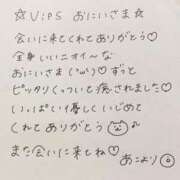 ☆ViPS おにいさま☆
会いに来てくれてありがとう♡
全身いいニオイ〜な
おにいさま(''ω'')♡ずっと
ピッタリくっついて癒されました♡
いっぱい優しくいじめて
くれてありがとう
また会いに来てね♡
あこより